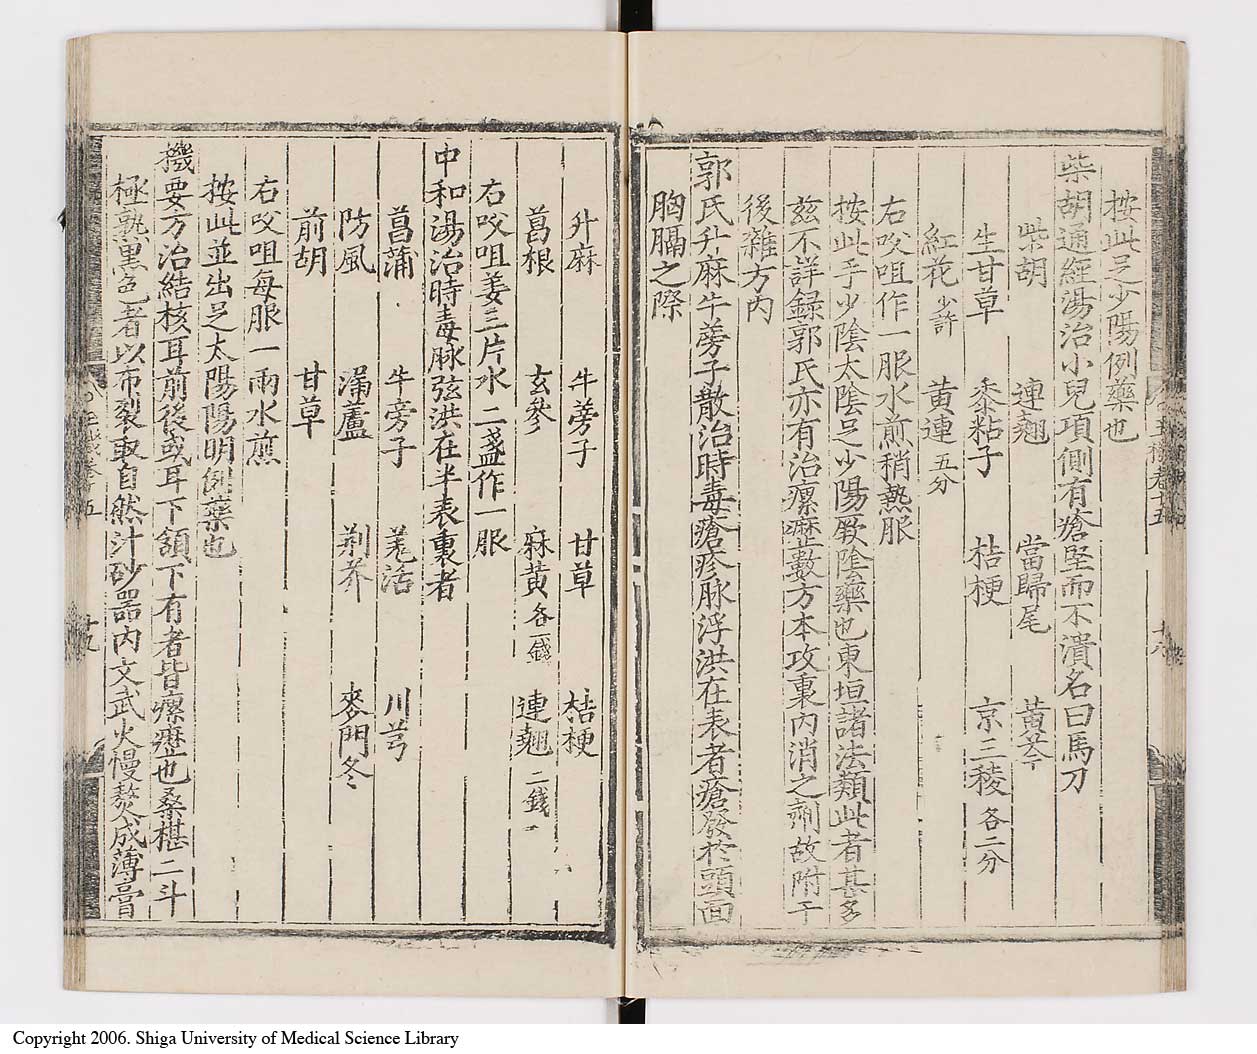 按此足少陽例藥也
柴胡通經湯治小兒項側有瘡堅而不潰名曰馬刀
柴胡 連翹 當歸尾 黃芩
生甘草 黍粘子 桔梗 京三稜各二分
紅花少許 黃連五分
右㕮咀作一服水煎稍熱服
按此手少陰太陰足少陽厥陰藥也東垣諸法類此者甚多
茲不詳録郭氏亦有治瘰癧數方本攻裏內消之劑故附于
後雜方內
郭氏升麻牛蒡子散治時毒瘡疹脉浮洪在表者瘡發於頭面
胸膈之際
升麻 牛蒡子 甘草 桔梗
葛根 玄參 麻黃各一錢 連翹二錢
右㕮咀姜三片水二盞作一服
中和湯治時毒脉弦洪在半表裏者
菖蒲 牛旁子 羗活 川芎
防風 漏蘆 荆芥 麥門冬
前胡 甘草
右㕮咀每服一兩水煎
按此並出足太陽陽明例藥也
機要方治結核耳前後或耳下頷下有者皆瘰癧也桑椹二斗
極熟黑色者以布裂取自然汁砂器內文武火慢熬成薄膏
十九
Copyright 2006. Shiga University of Medical Science Library